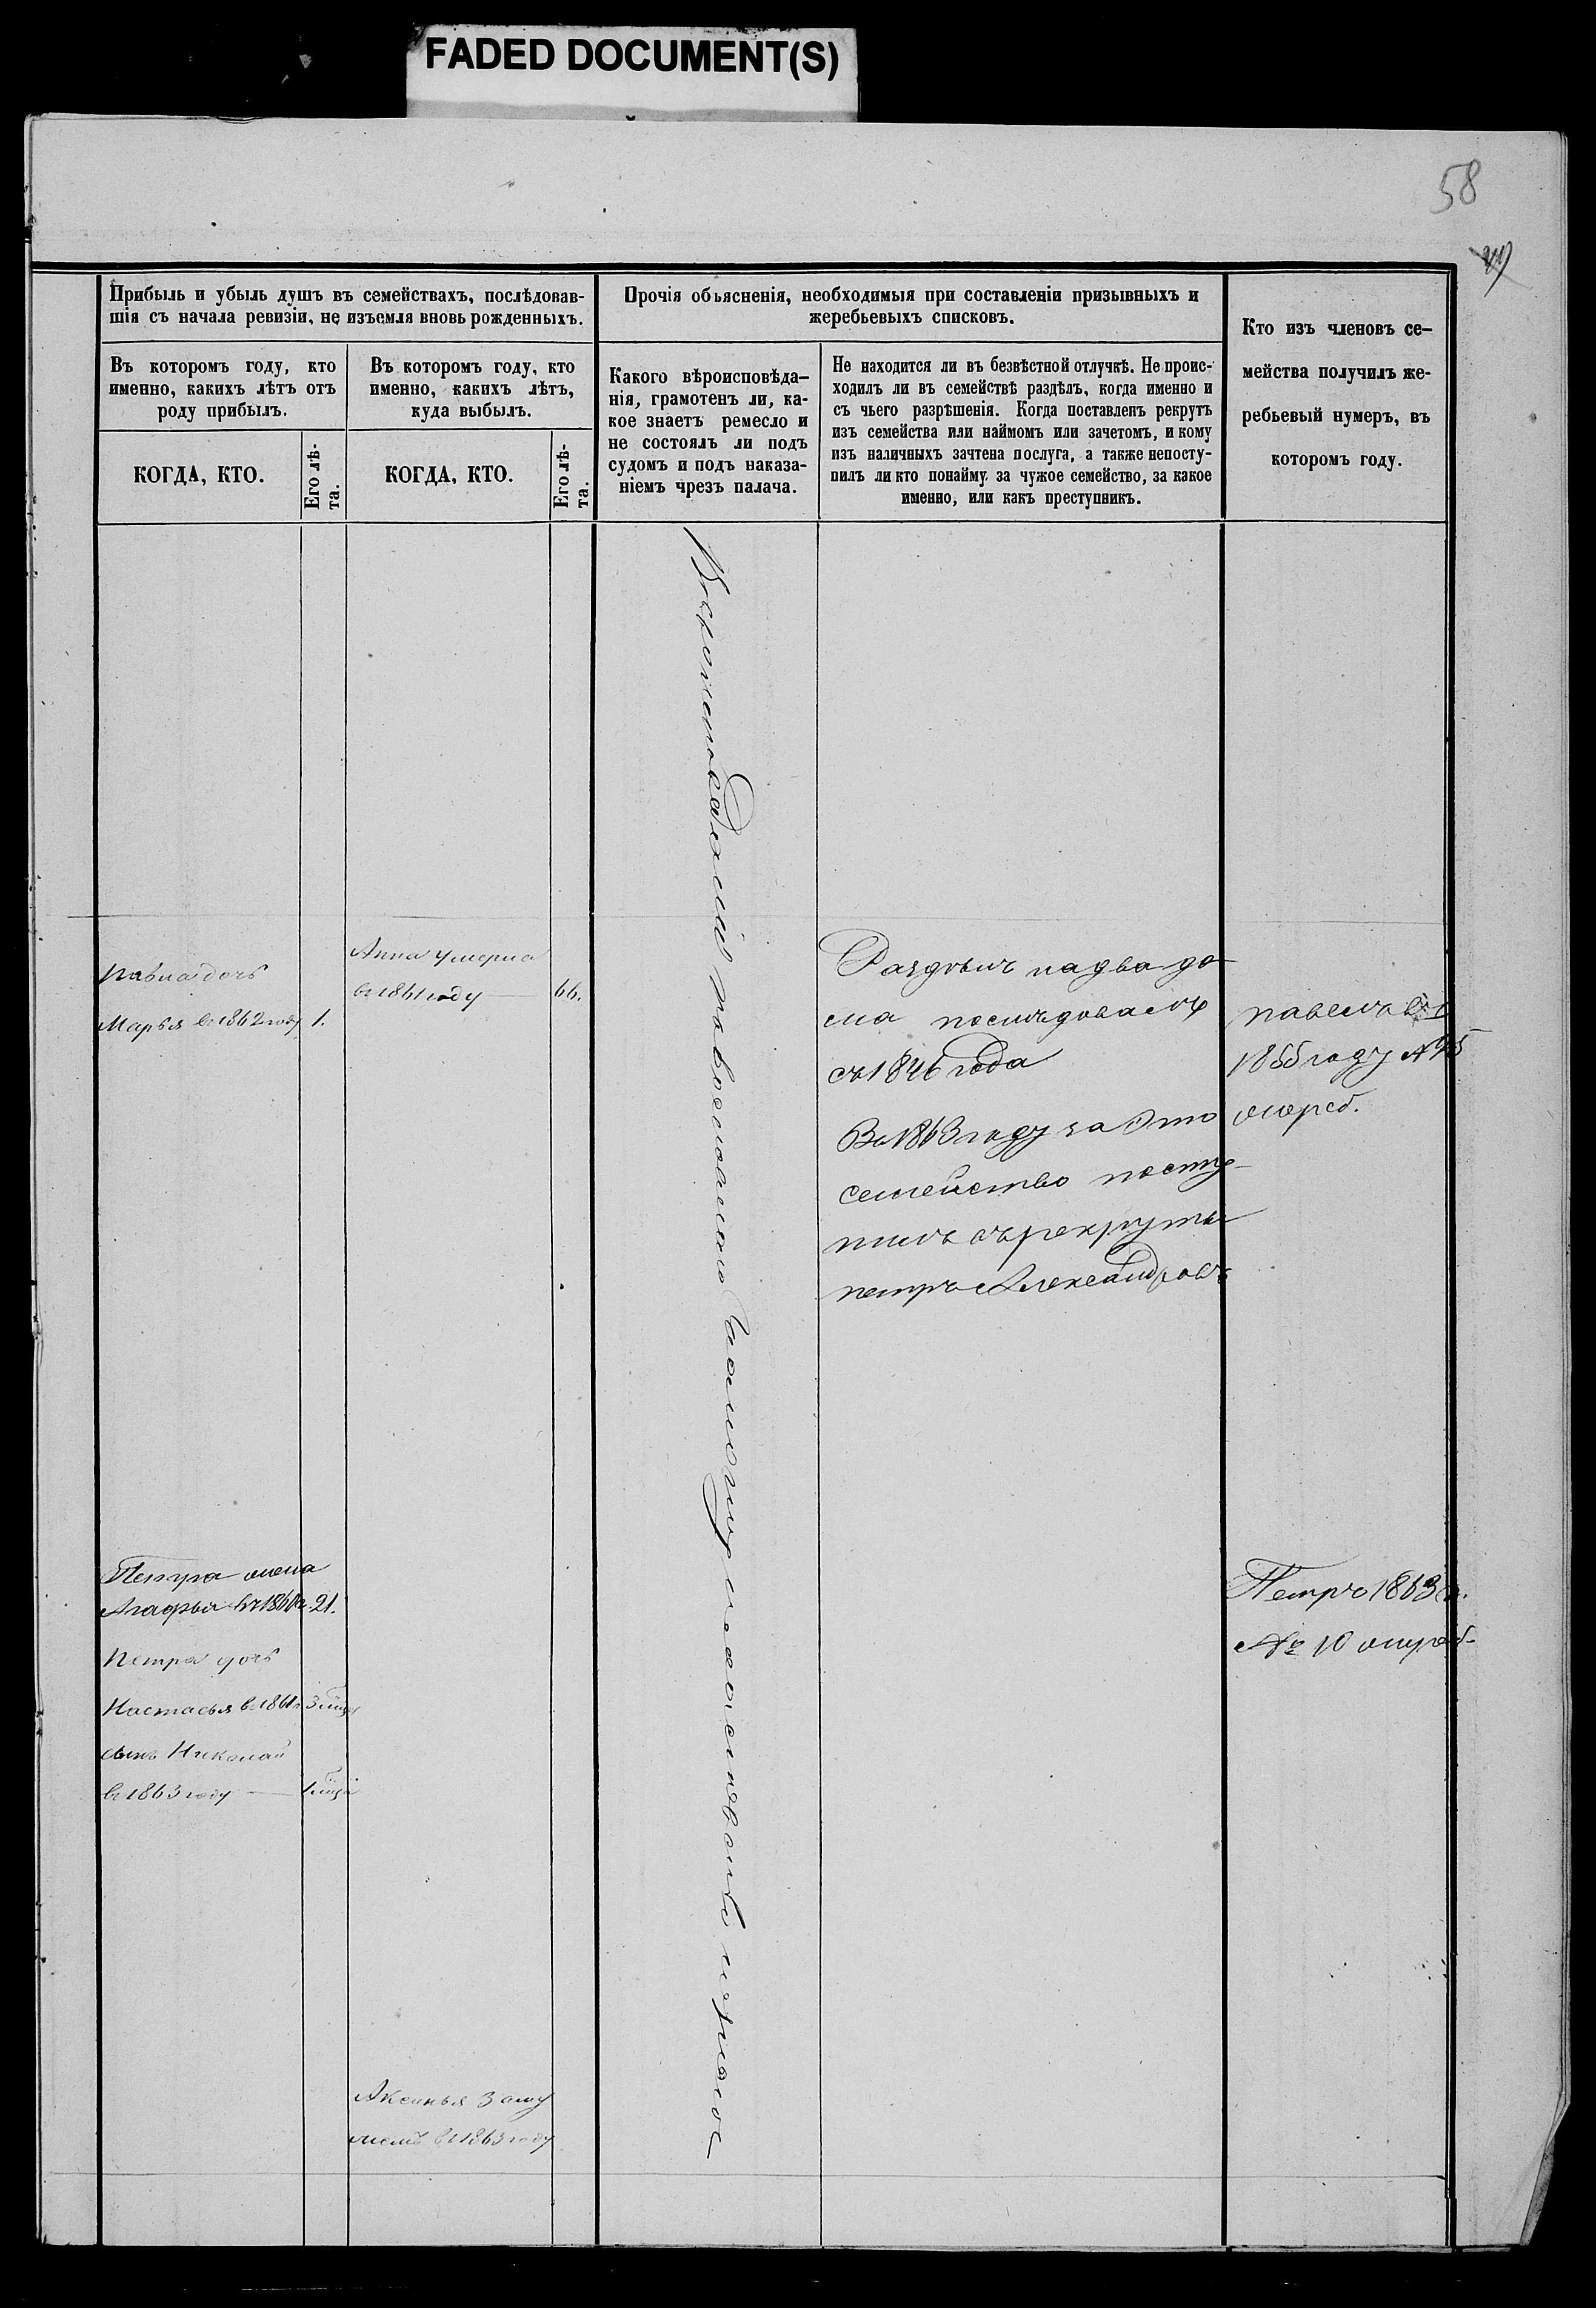 FADED DOCUMENT(S)
58
Прибыль и убыль душъ въ семействахъ, послѣдовав-
шія съ начала ревизіи, не изъемля вновь рожденныхъ.
Въ которомъ году, кто
именно, какихъ лѣтъ отъ
роду прибылъ.
КОГДА, КТО.
Его лѣ-
та.
Въ которомъ году, кто
именно, какихъ лѣтъ,
куда выбылъ.
КОГДА, КТО.
Его лѣ-
та.
Прочія объясненія, необходимыя при составленіи призывныхъ и
жеребьевыхъ списковъ.
Какого вѣроисповѣда-
нія, грамотенъ ли, ка-
кое знаетъ ремесло и
не состоялъ ли подъ
судомъ и подъ наказа-
ніемъ чрезъ палача.
Не находится ли въ безвѣстной отлучкѣ. Не проис-
ходилъ ли въ семействѣ раздѣлъ, когда именно и
съ чьего разрѣшенія. Когда поставленъ рекрутъ
изъ семейства или наймомъ или зачетомъ, и кому
изъ наличныхъ зачтена послуга, а также непосту-
пилъ ли кто понайму. за чужое семейство, за какое
именно, или какъ преступникъ.
Кто изъ членовъ се-
мейства получилъ же-
ребьевый нумеръ, въ
которомъ году.
павла дочь
Марья въ 1862 году 1.
Анна умерла
въ 1861 году — 66.
Раздѣлъ на два до-
ма послѣдовалъ
съ 1846 года
Въ 1863 году за это
семейство посту-
пилъ въ рекруты
петръ Александровъ
павелъ въ
1855 году №
жереб.
Петра жена
Агафья въ 186 21.
Петра дочь
Настасья въ 1861 г 3 мѣц
сынъ Николай
въ 1863 году — 1 мѣц
Петръ 1863 г.
№ 10 жереб.
Аксинья заму
жемъ въ 1863 году